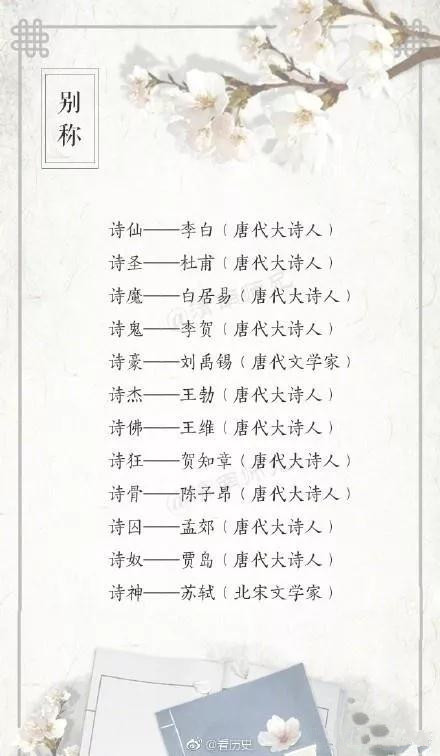 别称
诗仙——李白（唐代大诗人）
诗圣——杜甫（唐代大诗人）
诗魔——白居易（唐代大诗人）
诗鬼——李贺（唐代大诗人）
诗豪——刘禹锡（唐代文学家）
诗杰——王勃（唐代大诗人）
诗佛——王维（唐代大诗人）
诗狂——贺知章（唐代大诗人）
诗骨——陈子昂（唐代大诗人）
诗囚——孟郊（唐代大诗人）
诗奴——贾岛（唐代大诗人）
诗神——苏轼（北宋文学家）
@看历史